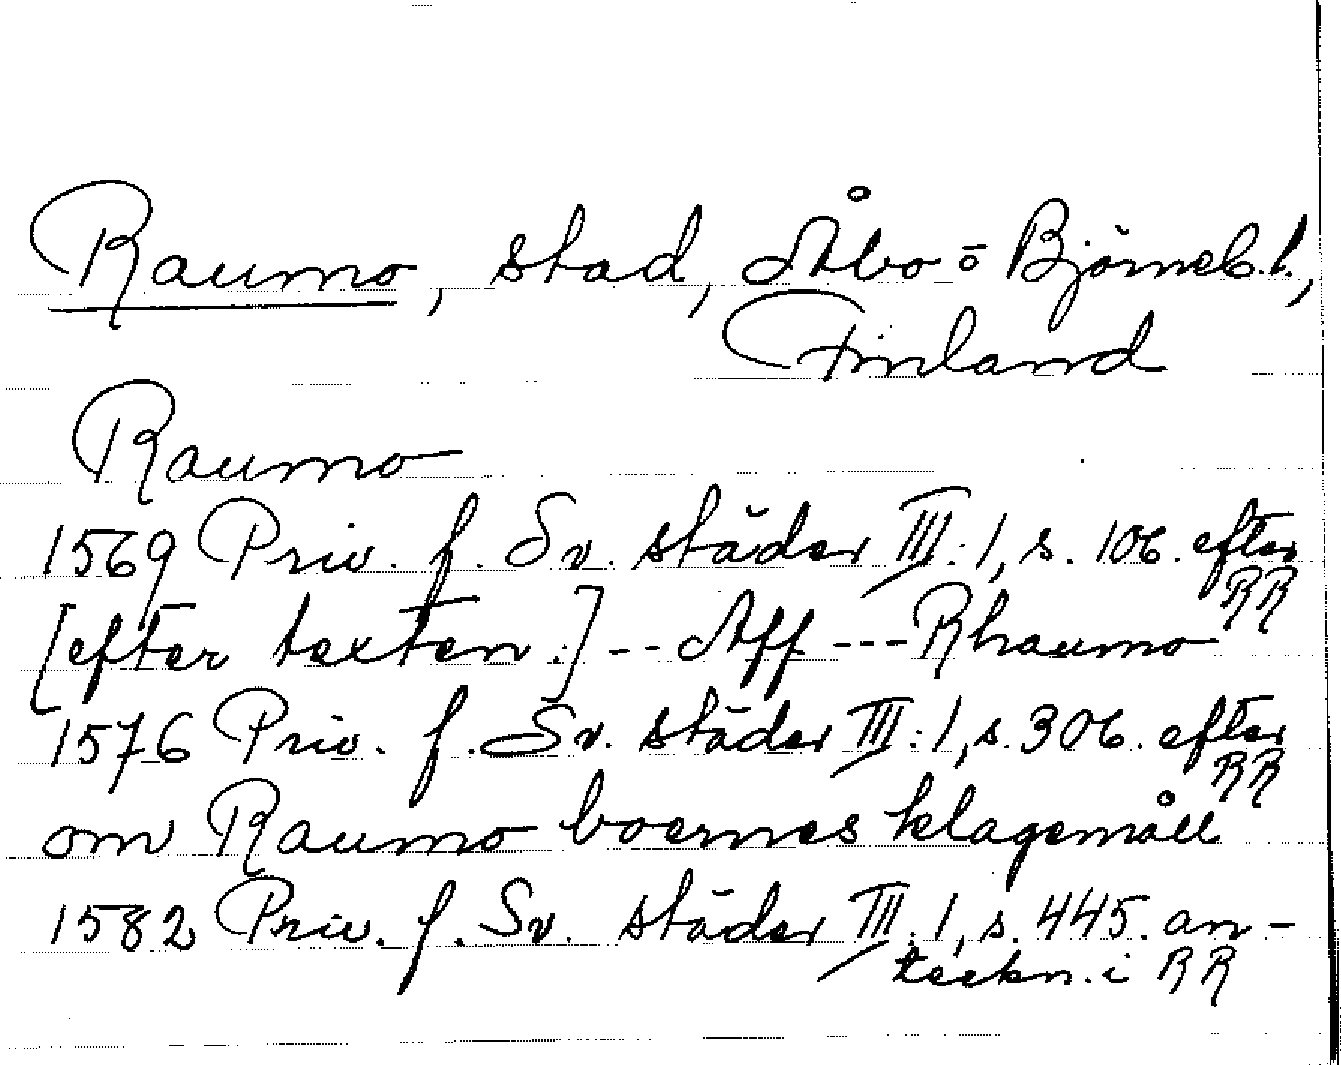 Raumo, stad, Åbo o Björneb. l.,
Finland
Raumo
1569 Priv. f. Sv. städer III:1, s. 106. efter RR
[efter texten:] -- Aff --- Rhaumo
1576 Priv. f. Sv. städer III:1, s. 306. efter RR
om Raumo boernes klagemåll
1582 Priv. f. Sv. städer III:1, s. 445. an-
teckn. i RR